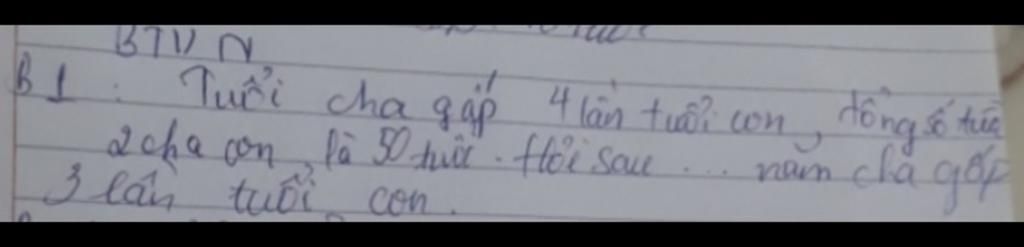 BTVN
B1: Tuổi cha gấp 4 lần tuổi con, tổng số tuổi
2 cha con là 50 tuổi. Hỏi sau ... năm cha gấp
3 lần tuổi con.